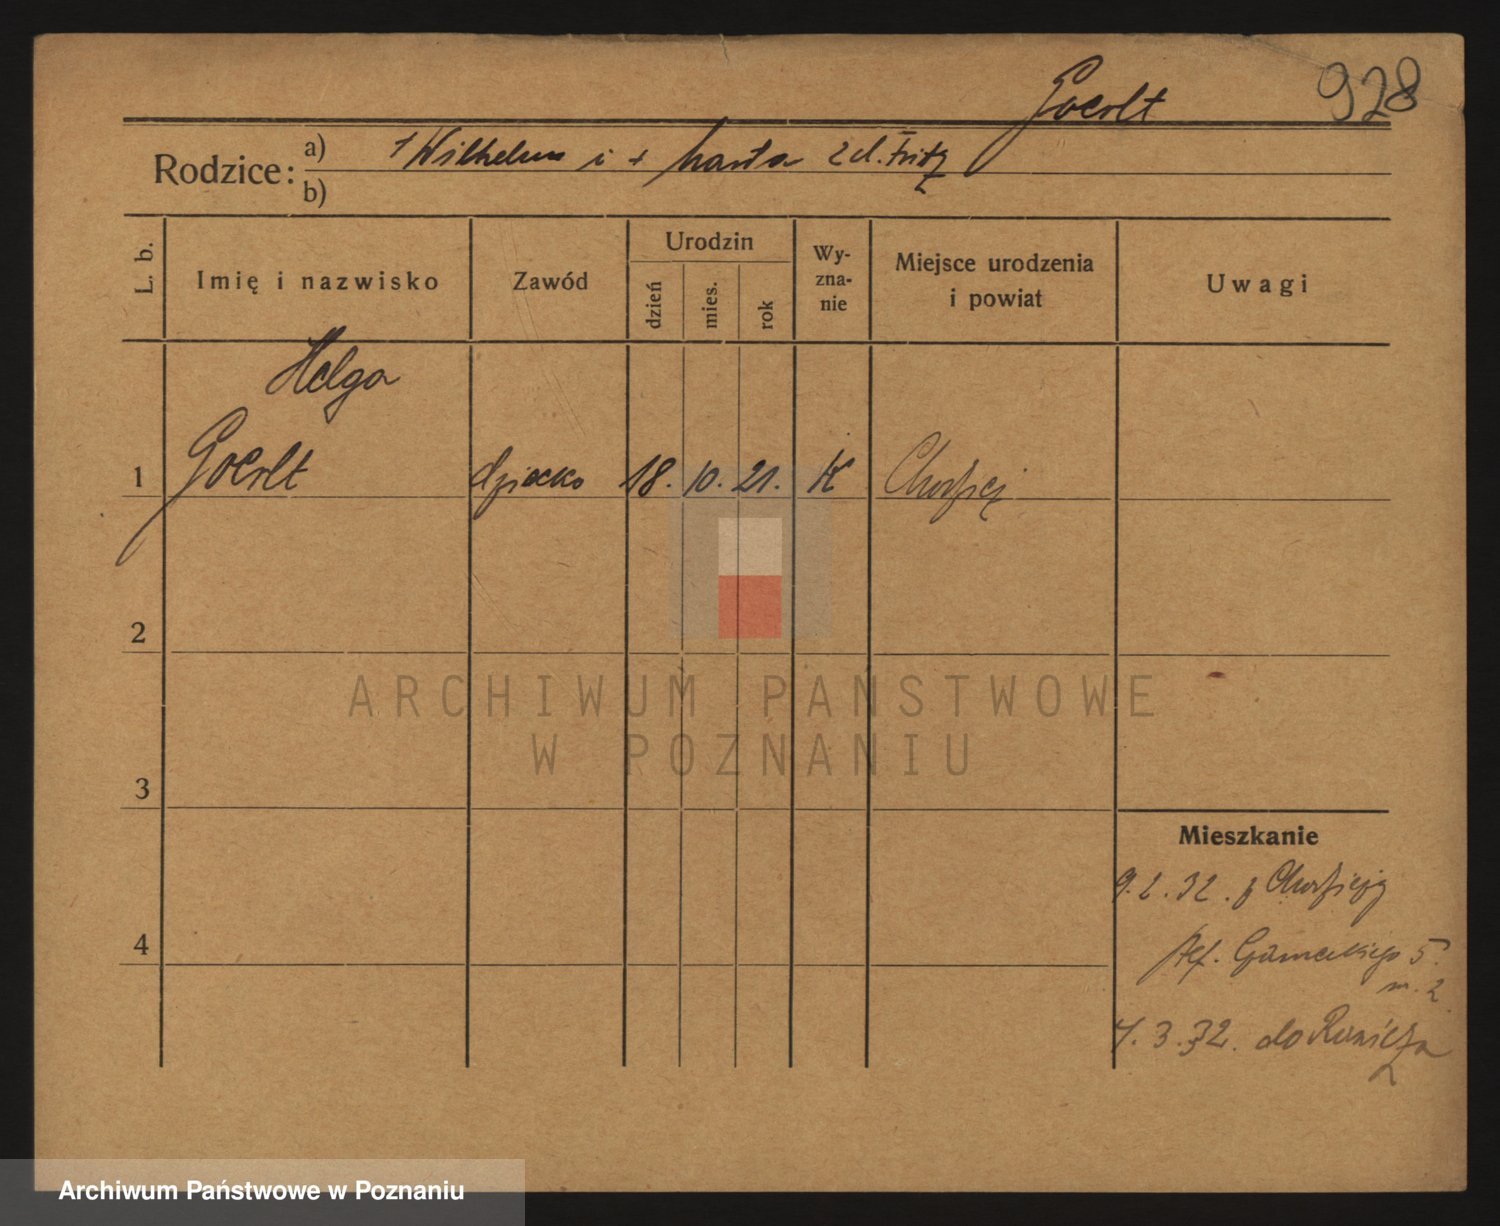 Goerlt 928
Rodzice: a) Wilhelm i + Marta z d. Fritz
b)
L. b.
Imię i nazwisko
Zawód
Urodzin
dzień
mies.
rok
Wy-
zna-
nie
Miejsce urodzenia
i powiat
Uwagi
Helga
1 Goerlt dziecko 18. 10. 21. K
2
3
4
Mieszkanie
9.2.32. z
5.
m. 2
3.32. do
ARCHIWUM PAŃSTWOWE
W POZNANIU
Archiwum Państwowe w Poznaniu